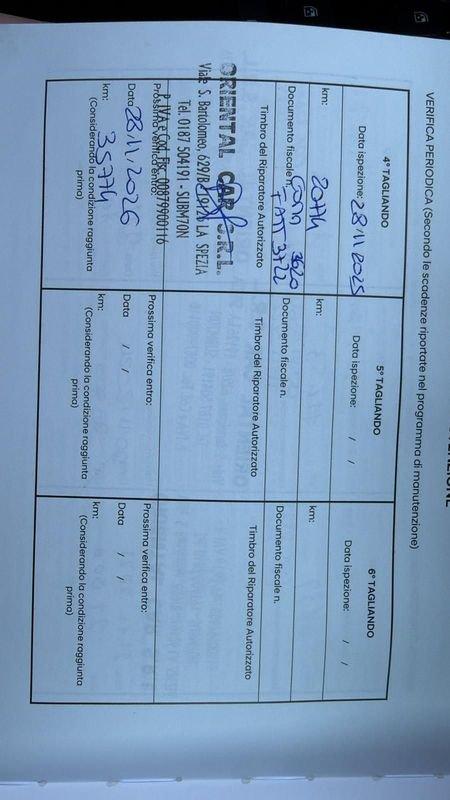 VERIFICA PERIODICA (Secondo le scadenze riportate nel programma di manutenzione)
4° TAGLIANDO
Data ispezione: 28/11/2025
km: 20774
Documento fiscale n.
3620
FATT 3722
Timbro del Riparatore Autorizzato
ORIENTAL CAR S.R.L.
Viale S. Bartolomeo, 629/B - 19126 LA SPEZIA
Tel. 0187 504191 - SUBM70N
P. IVA e Cod. Fisc. 00879900116
Prossima verifica entro:
Data 28/11/2026
km: 35774
(Considerando la condizione raggiunta
prima)
5° TAGLIANDO
Data ispezione: / /
km:
Documento fiscale n.
Timbro del Riparatore Autorizzato
Prossima verifica entro:
Data / /
km:
(Considerando la condizione raggiunta
prima)
6° TAGLIANDO
Data ispezione: / /
km:
Documento fiscale n.
Timbro del Riparatore Autorizzato
Prossima verifica entro:
Data / /
km:
(Considerando la condizione raggiunta
prima)